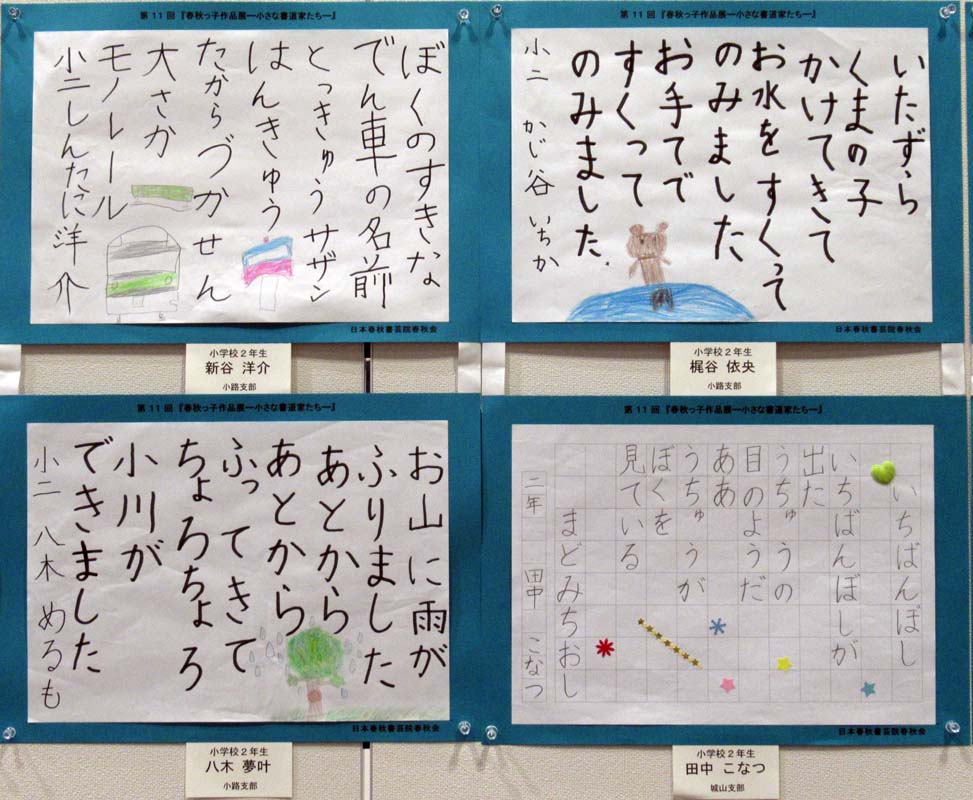 第11回『春秋っ子作品展ー小さな書道家たちー』
ぼくのすきな
でん車の名前
とっきゅうサザン
はんきゅう
たからづかせん
大さか
モノレール
小二しんたに洋介
日本春秋書芸院春秋会
小学校2年生
新谷 洋介
小路支部
第11回『春秋っ子作品展ー小さな書道家たちー』
いたずら
くまの子
かけてきて
お水をすくって
のみました
お手てで
すくって
のみました
小二 かじ谷 いちか
日本春秋書芸院春秋会
小学校2年生
梶谷 依央
小路支部
第11回『春秋っ子作品展ー小さな書道家たちー』
お山に雨が
ふりました
あとから
あとから
ふってきて
ちょろちょろ
小川が
できました
小二 八木 めるも
日本春秋書芸院春秋会
小学校2年生
八木 夢叶
小路支部
第11回『春秋っ子作品展ー小さな書道家たちー』
いちばんぼし
いちばんぼしが
出た
うちゅうの
目のようだ
ああ
うちゅうが
ぼくを
見ている
まどみちおし
二年 田中 こなつ
日本春秋書芸院春秋会
小学校2年生
田中 こなつ
城山支部